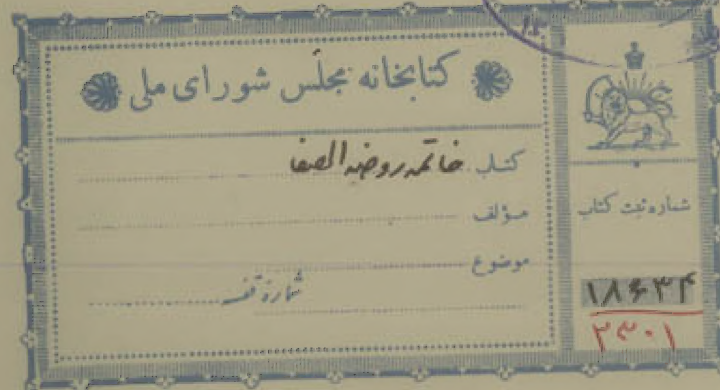 کتابخانه مجلس شورای ملی
کتاب خاتمه روضه الصفا
مؤلف
موضوع
شماره قفسه
شماره ثبت کتاب
۱۸۶۳۴
۲۳۰۱